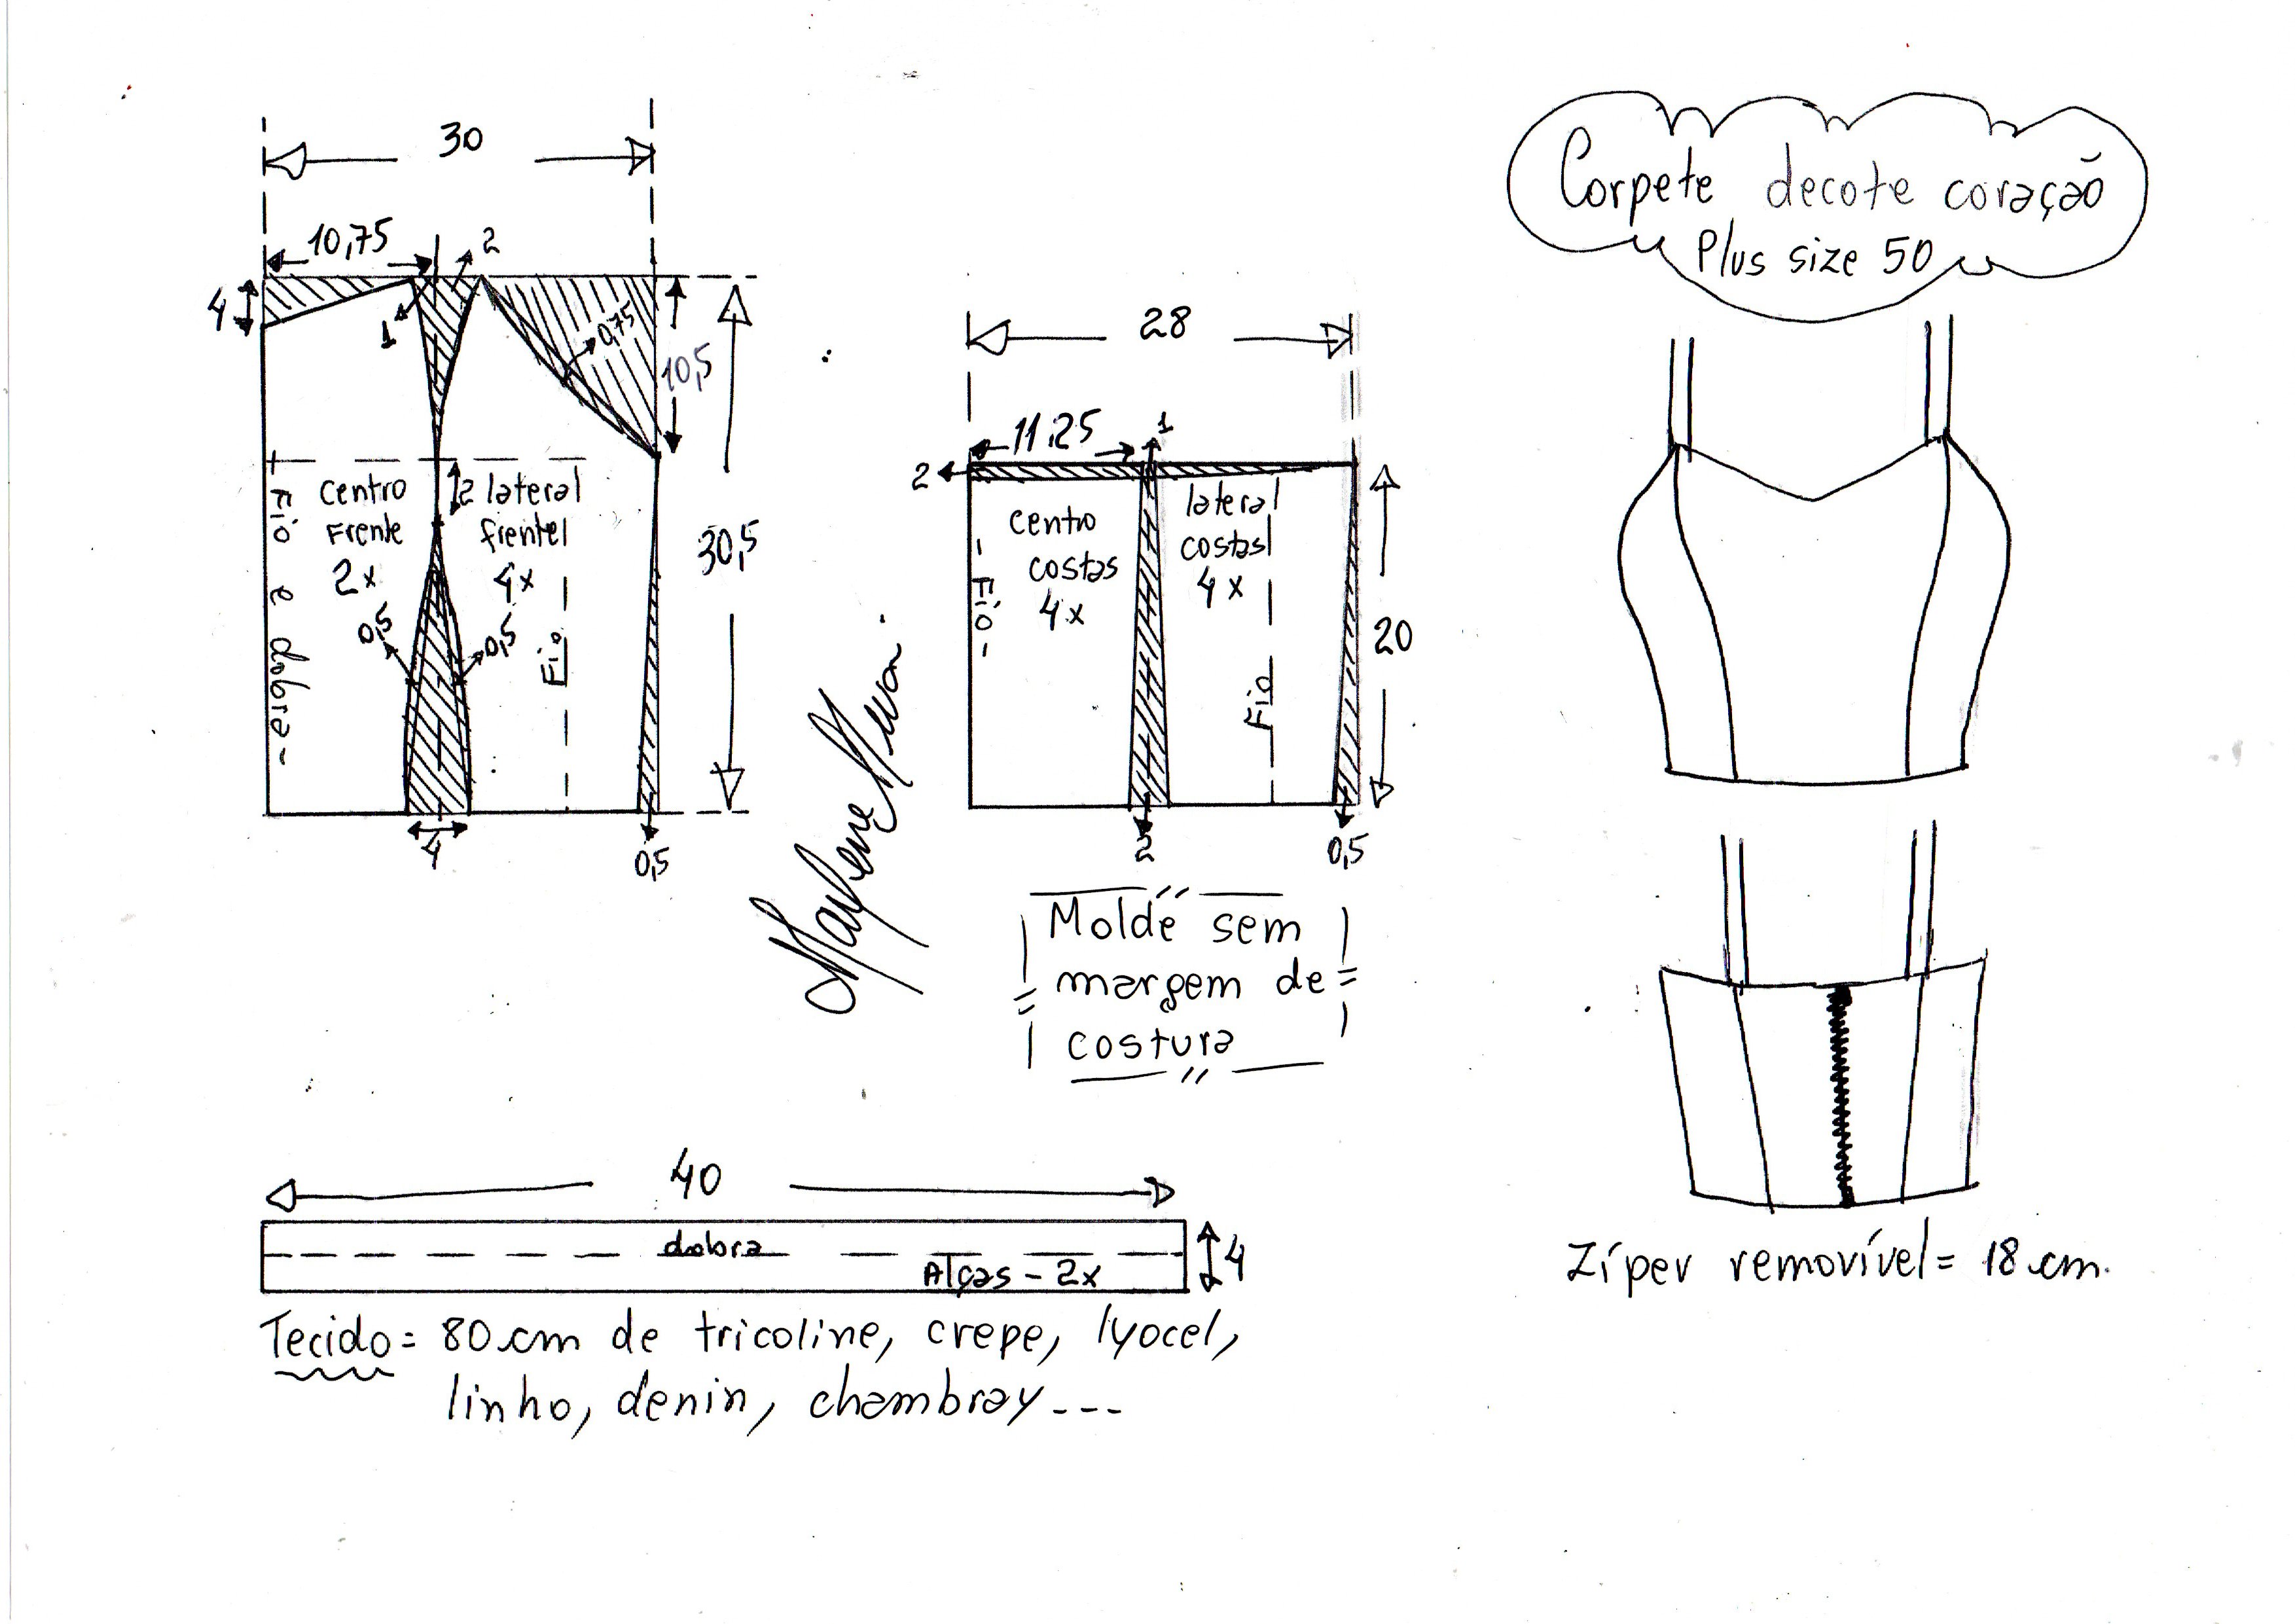 Corpete decote coração
Plus size 50
30
10,75
2
4
1
0,75
10,5
30,5
Fio e dobra -
centro
Frente
2x
2
lateral
frente
4x
0,5
0,5
Fio
4
0,5
28
11,25
1
2
- Fio -
centro
costas
4x
lateral
costas
4x
Fio
20
2
0,5
Molde sem
margem de
costura
40
dobra
Alças - 2x
4
Tecido = 80 cm de tricoline, crepe, lyocel,
linho, denin, chambray ---
Zíper removível = 18 cm.